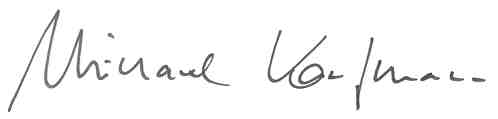 Michael Kaufmann